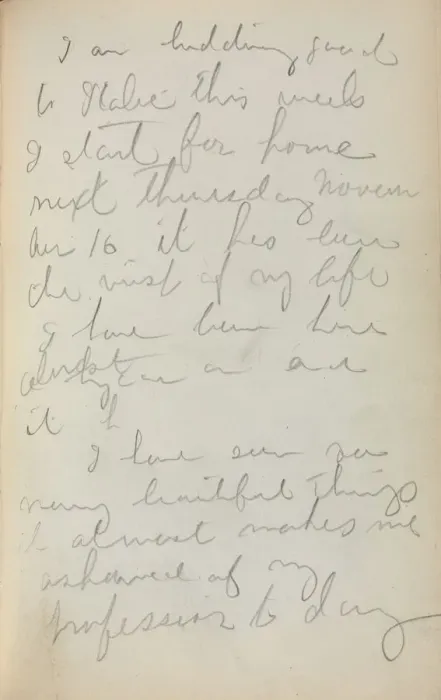 I am bidding good
to Italie this week
I start for home
next Thursday Novem
ber 16 it has been
the visit of my life
I have been here
almost year an and
it h
I have seen so
many beautiful things
it almost makes me
ashamed of my
profession to day